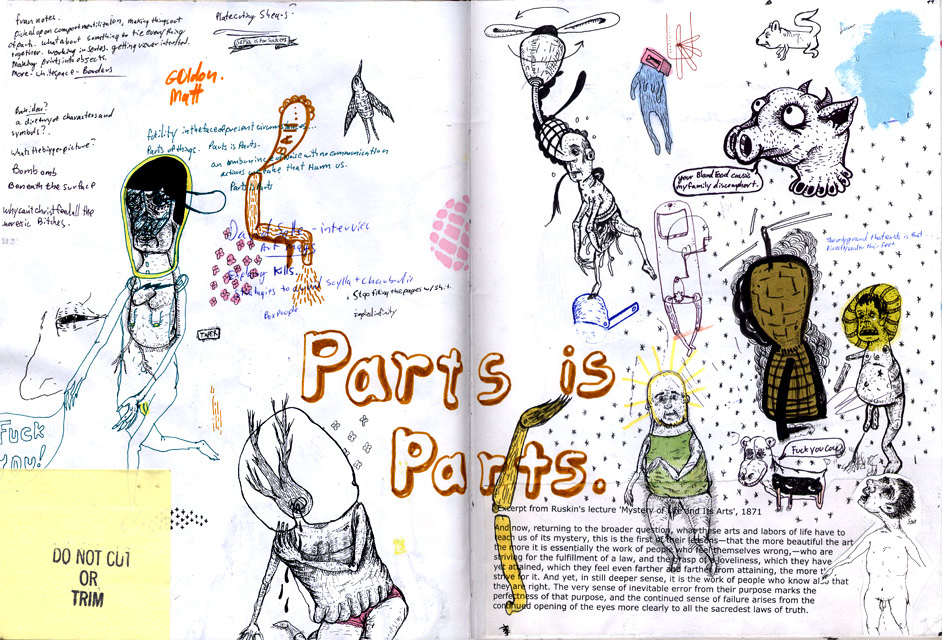 from notes.
picked up on compartmentilization, making things out
of parts. what about something to tie everything
together. working in series. getting viewer interested.
Making prints into objects.
More - whitespace - Borders
Platecutting
is for suckers
Golden.
Matt
Book idea?
a directory of characters and
symbols?
whats the bigger picture?
Bomb omb
Beneath the surface
why can't christ feed all the
Bitches.
futility in the face of present
Parts of things. Parts is Parts.
with no communication
actions that Harm us.
Parts is Parts
- interview
Art
Kills.
to Scylla + Charybdis
. Stop filling the pages w/ sh.t.
Box people
implied infinity
TWER
Fuck
you!
DO NOT CUT
OR
TRIM
Parts is
Parts.
your Bland food causes
my family discomphort.
The only ground that exists is that
directly under their feet
Fuck you Cow!
Excerpt from Ruskin's lecture 'Mystery of Life and Its Arts', 1871
And now, returning to the broader question, what these arts and labors of life have to
teach us of its mystery, this is the first of their lessons—that the more beautiful the art
the more it is essentially the work of people who feel themselves wrong,—who are
striving for the fulfillment of a law, and the grasp of a loveliness, which they have
yet attained, which they feel even farther and farther from attaining, the more
strive for it. And yet, in still deeper sense, it is the work of people who know also that
they are right. The very sense of inevitable error from their purpose marks the
perfectness of that purpose, and the continued sense of failure arises from the
continued opening of the eyes more clearly to all the sacredest laws of truth.